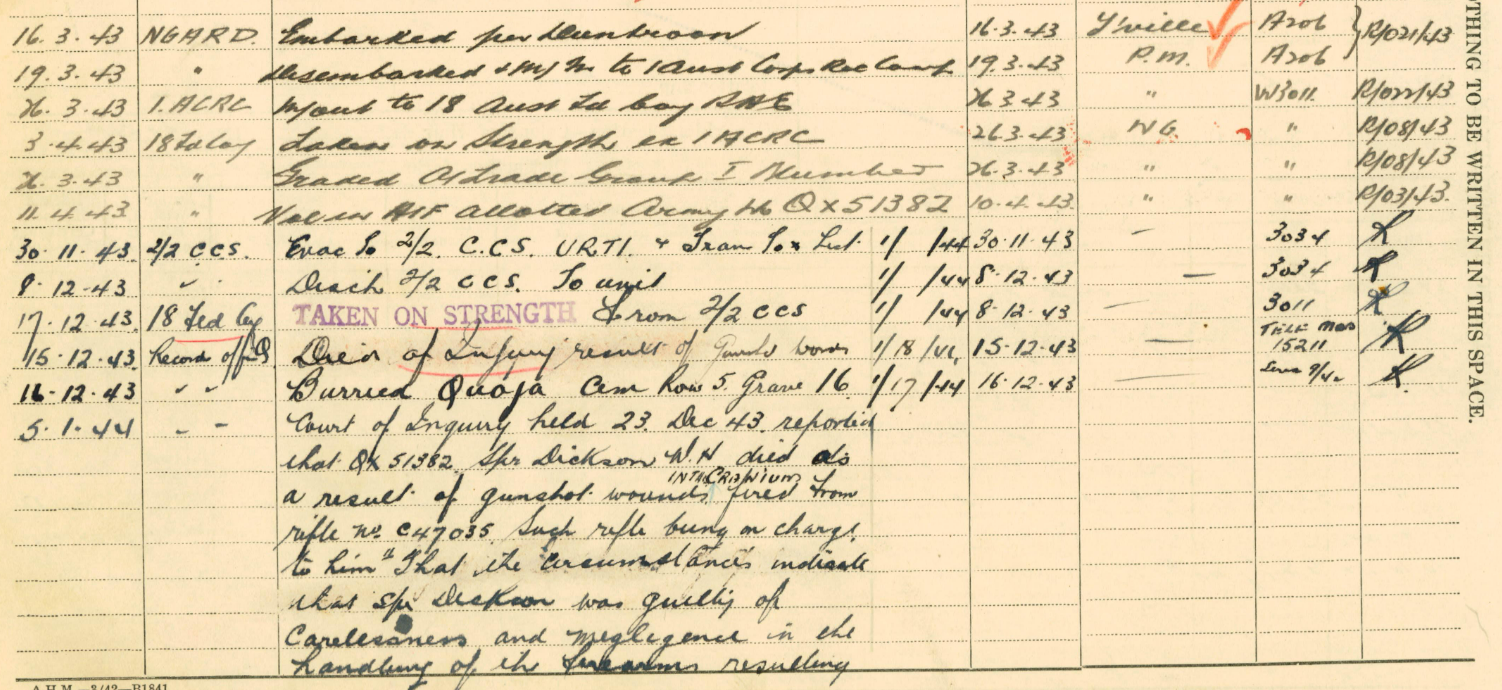 16.3.43 NGARD. Embarked per Duntroon 16.3.43 T'ville A206 R/021/43
19.3.43 " Disembarked & M/In to 1 Aust Corps Rec Camp 19.3.43 P.M. A206
26.3.43 1.ACRC M/out to 18 Aust Fd Coy RAE 26.3.43 " W3011. R/022/43
3.4.43 18 Fd Coy Taken on Strength ex 1 ACRC 26.3.43 NG. " R/08/43
26.3.43 " Graded As Trade Group I Plumber 26.3.43 " " R/08/43
11.4.43 " Vol in AIF allotted Army No QX51382 10.4.43. " " R/03/43.
30.11.43. 2/2 CCS. Evac to 2/2. C.C.S. URTI. & Tran to x List 1/ /44 30.11.43 – 3034
8.12.43 " Disch 2/2 CCS. To unit 1/ /44 8.12.43 – 3034
17.12.43. 18 Fed Coy TAKEN ON STRENGTH From 2/2 CCS 1/ /44 8.12.43 – 3011
15.12.43. Record offics Died of Injury result of Gunsho wounds 1/18/44, 15.12.43 – TELE Mes 15211
16.12.43 " " Burried Quoja Cem Row 5. Grave 16. 1/17/44 16.12.43 –
5.1.44 " " Court of Inquiry held 23. Dec 43. reported
that QX 51382. Spr Dickson W.H died as
INTRACRANIUM
a result of gunshot wounds fired from
rifle No. C47035. Such rifle being on charge.
to him" That the circumstances indicate
that Spr Dickson was guilty of
Carelessness and Negligence in the
handling of the firearms resulting
OTHING TO BE WRITTEN IN THIS SPACE.
A.H.M.—3/42—R1841